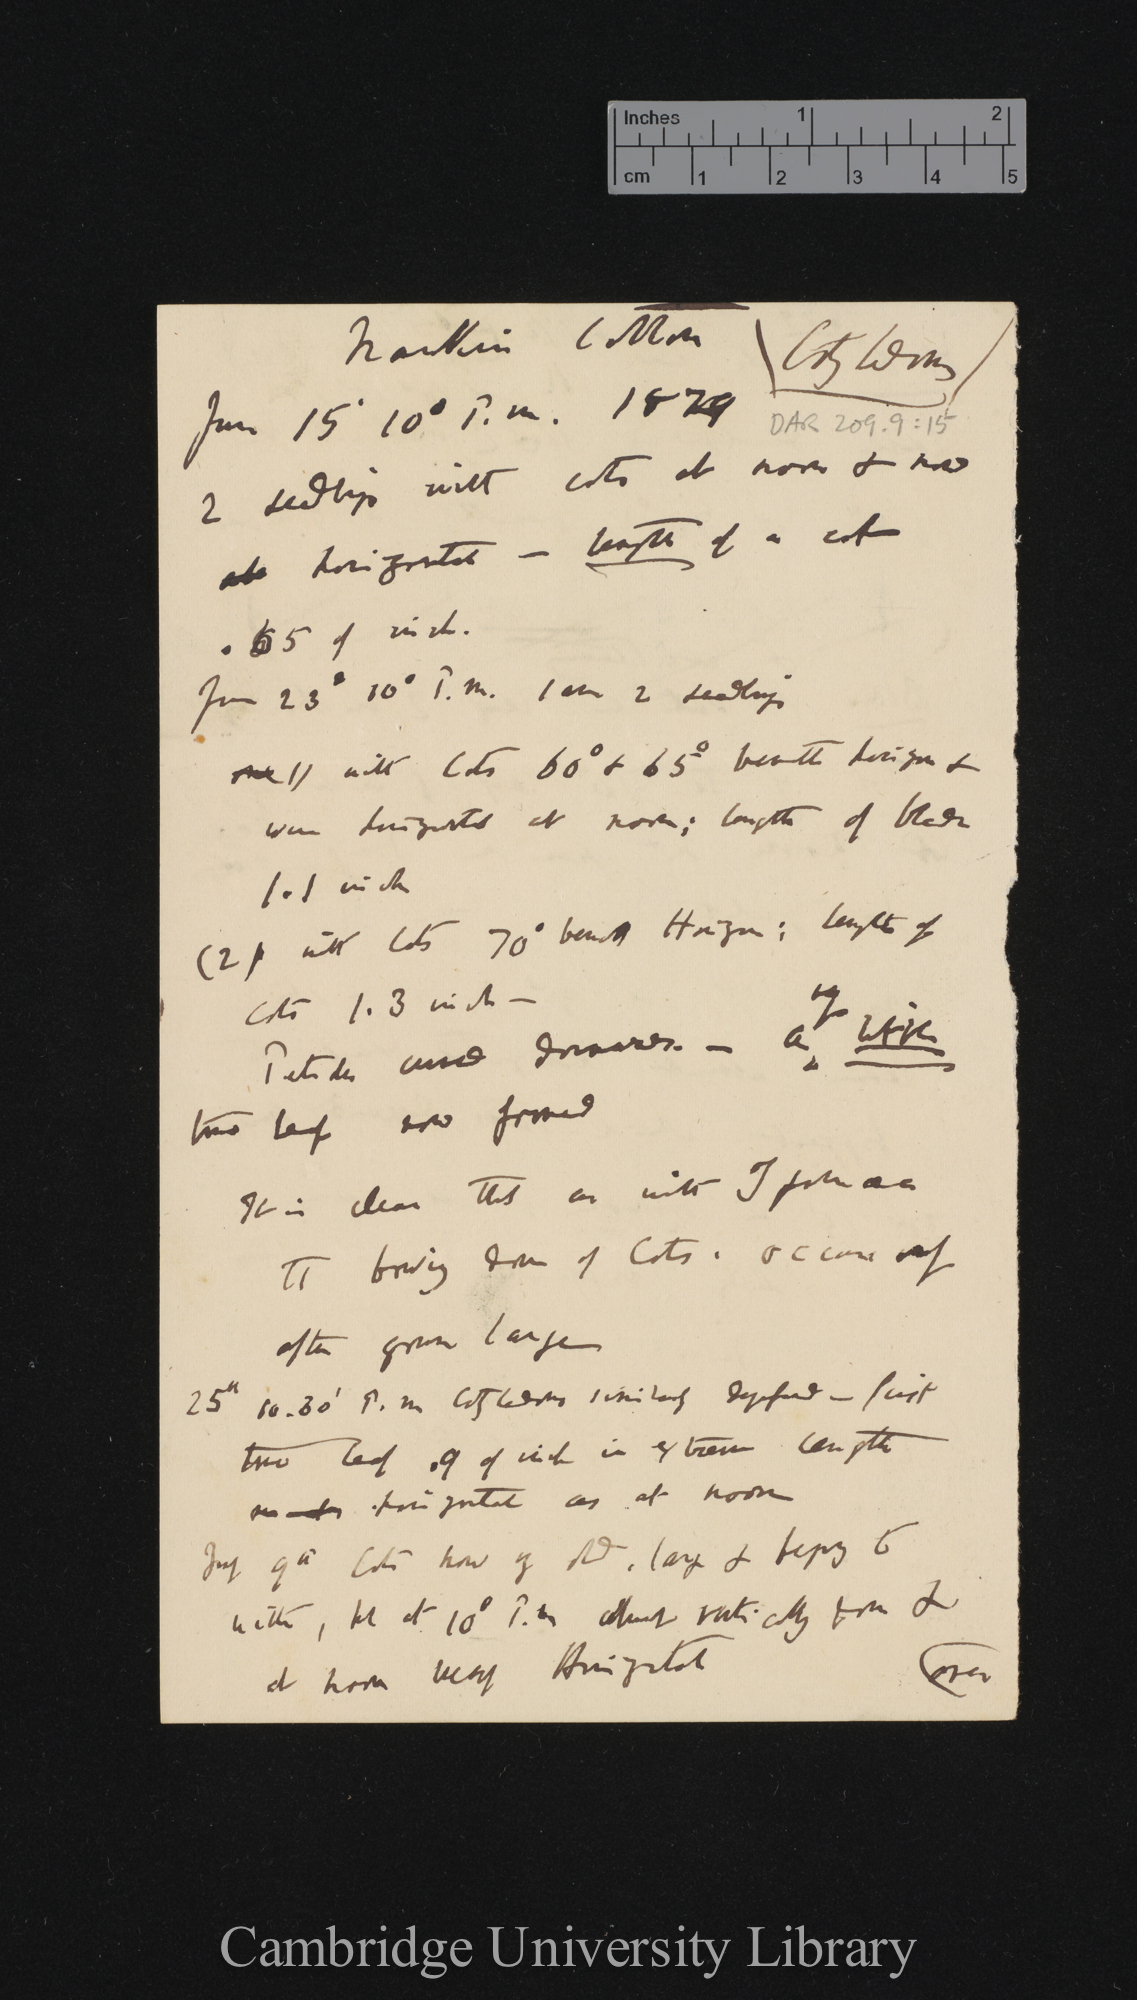 Inches 1 2
cm 1 2 3 4 5
Nankin Cotton (Cotyledons)
June 15' 10° P.m. 1879
DAR 209.9:15
2 seedlings with cots at noon & now
horizontal — length of a cot
.65 of inch.
June 23° 10° P.m. I saw 2 seedlings
(1) with Cots 60° & 65° beneath horizon &
were horizontal at noon; length of blade
1.1 inch
(2) with Cots 70° beneath Horizon; length of
Cots 1.3 inch —
Petioles curved downwards. — a
true leaf now formed
It is clear that as with Ipomoea
the bowing down of Cots. occurs only
after grown large
25th 10.30' P.m Cotyledons similarly depressed — first
true leaf .9 of inch in extreme length
horizontal as at noon
July 9th Cots now vy old, large & begng to
wither, but at 10° P.m almost vertically down &
at noon nearly Horizontal
(over
Cambridge University Library